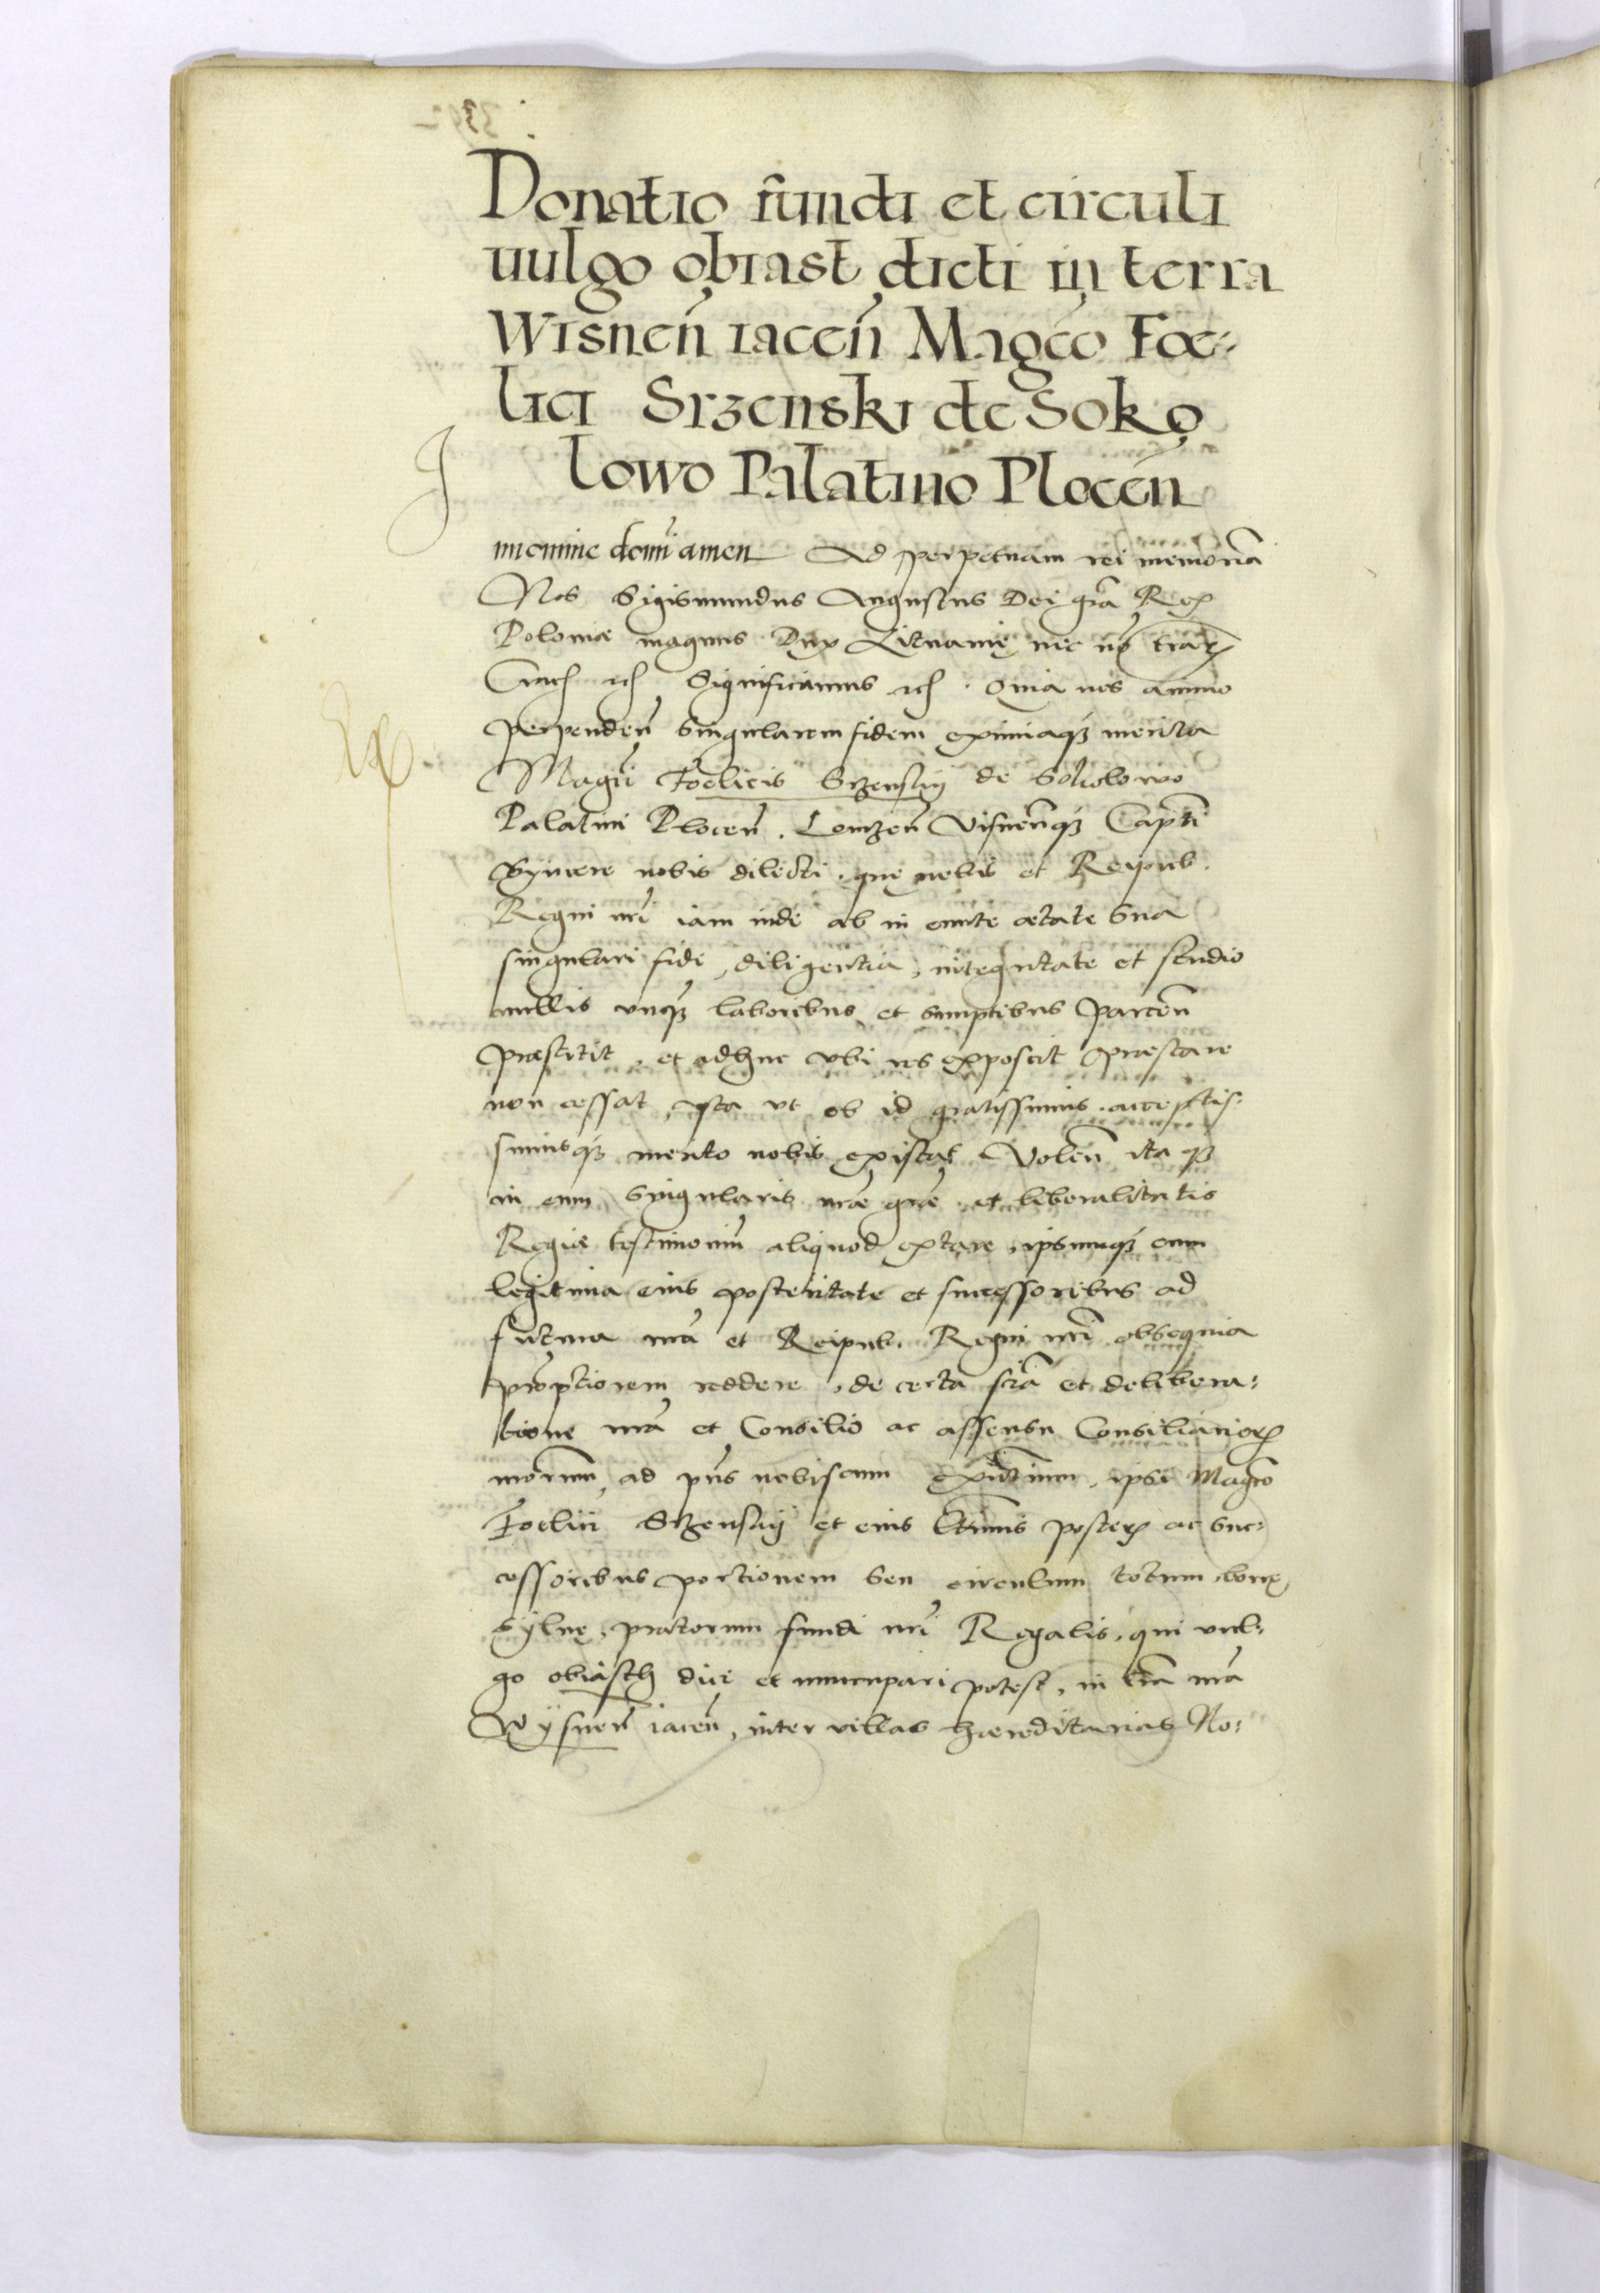 Donatio fundi et circuli
uulgo obiast dicti in terra
Wisnen̄ iacen̄ Magc̄o Foe-
lici Srzenski de Soko
lowo Palatino Plocen̄
In nomine domī amen Ad perpetuam rei memoriā
Nos Sigismundus Augustus Dei grā Rex
Poloniæ magnus Dux Lituanię nec nō
Significamus Quia nos animo
perpenden̄ singularem fidem eximiaq; merita
Magci Foelicis Srzenskij de Sokolowo
Palatini Plocen̄. Lomzen̄ Visnen̄q; Capti
syncere nobis dilecti, quę nobis et Reipub.
Regni nri iam inde ab in eunte ætate sua
singulari fide, diligentia, integritate et studio
nullis vnq; laboribus et sumptibus parcen̄
præstitit, et adhuc vbi res exposcit præstare
non cessat, ita vt ob id gratissimus acceptis-
simusq; merito nobis existat Volen̄ itaq;
in eum singularis nræ græ et liberalitatis
Regiæ testimoniū aliquod extare, ipsumq; cum
legitima eius posteritate et successoribus ad
futura nrā et Reipub. Regni nri obsequia
promptiorem reddere, de certa sciā et delibera-
tione nrā et Consilio ac assensu Consiliarior
nrorum, ad pns nobiscum ipsi Magco
Foelici Srzenskij et eius ltimis poster ac suc-
cessoribus portionem seu circulum totum
sylvę, pratorum fundi nri Regalis, qui vul-
go obiasch dici et nuncupari potest, in trā nrā
Wysnen̄ iacen̄, inter villas hæreditarias No-